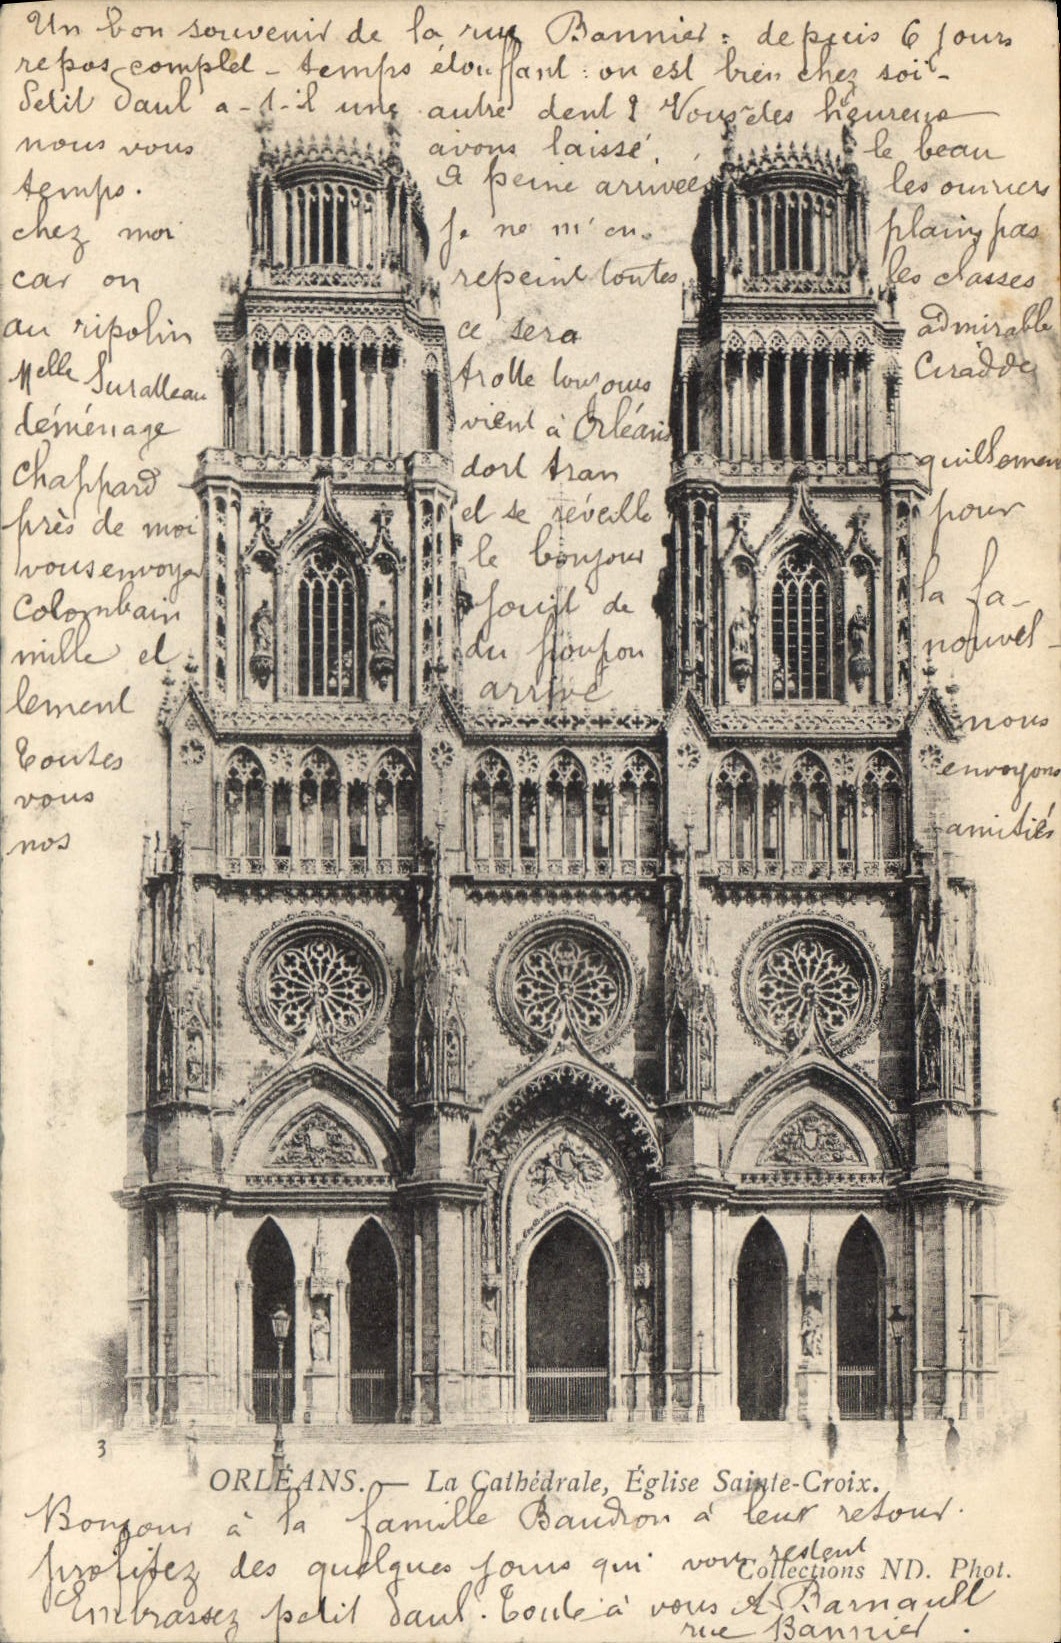 Un bon souvenir de la rue Bannier : depuis 6 jours
repos complet - temps étouffant : on est bien chez soi -
Petit Paul a-t-il une autre dent ? Vous êtes heureux
nous vous avons laissé le beau
temps. à peine arrivée les ouvriers
chez moi je ne m'en plains pas
car on repeint toutes les classes
au ripolin ce sera admirable
Melle Suralleau trotte toujours
déménage vient à Orléans
Chappard dort tran quillement
près de moi et se réveille pour
vous envoyer le bonjour la fa-
Colombain jouit de
mille et du poupon nouvel-
lement arrivé nous
Toutes envoyons
vous
nos amitiés
3
ORLÉANS. — La Cathédrale, Église Sainte-Croix.
Bonjour à la famille Baudron à leur retour.
profitez des quelques jours qui vous restent
Collections ND. Phot.
Embrassez petit Paul. Toute à vous A Barnault
rue Bannier.